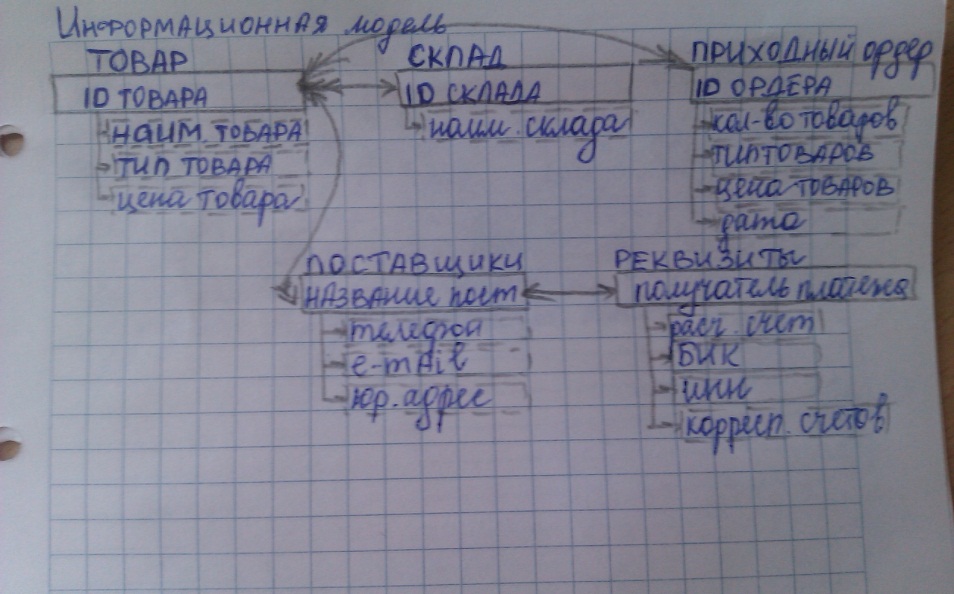 Информационная модель
ТОВАР
ID ТОВАРА
наим. товара
тип товара
цена товара
СКЛАД
ID СКЛАДА
наим. склада
ПРИХОДНЫЙ ордер
ID ОРДЕРА
кол-во товаров
тип товаров
цена товаров
дата
ПОСТАВЩИКИ
НАЗВАНИЕ пост
телефон
e-mail
юр. адрес
РЕКВИЗИТЫ
получатель платежа
расч. счет
БИК
ИНН
корресп. счетов